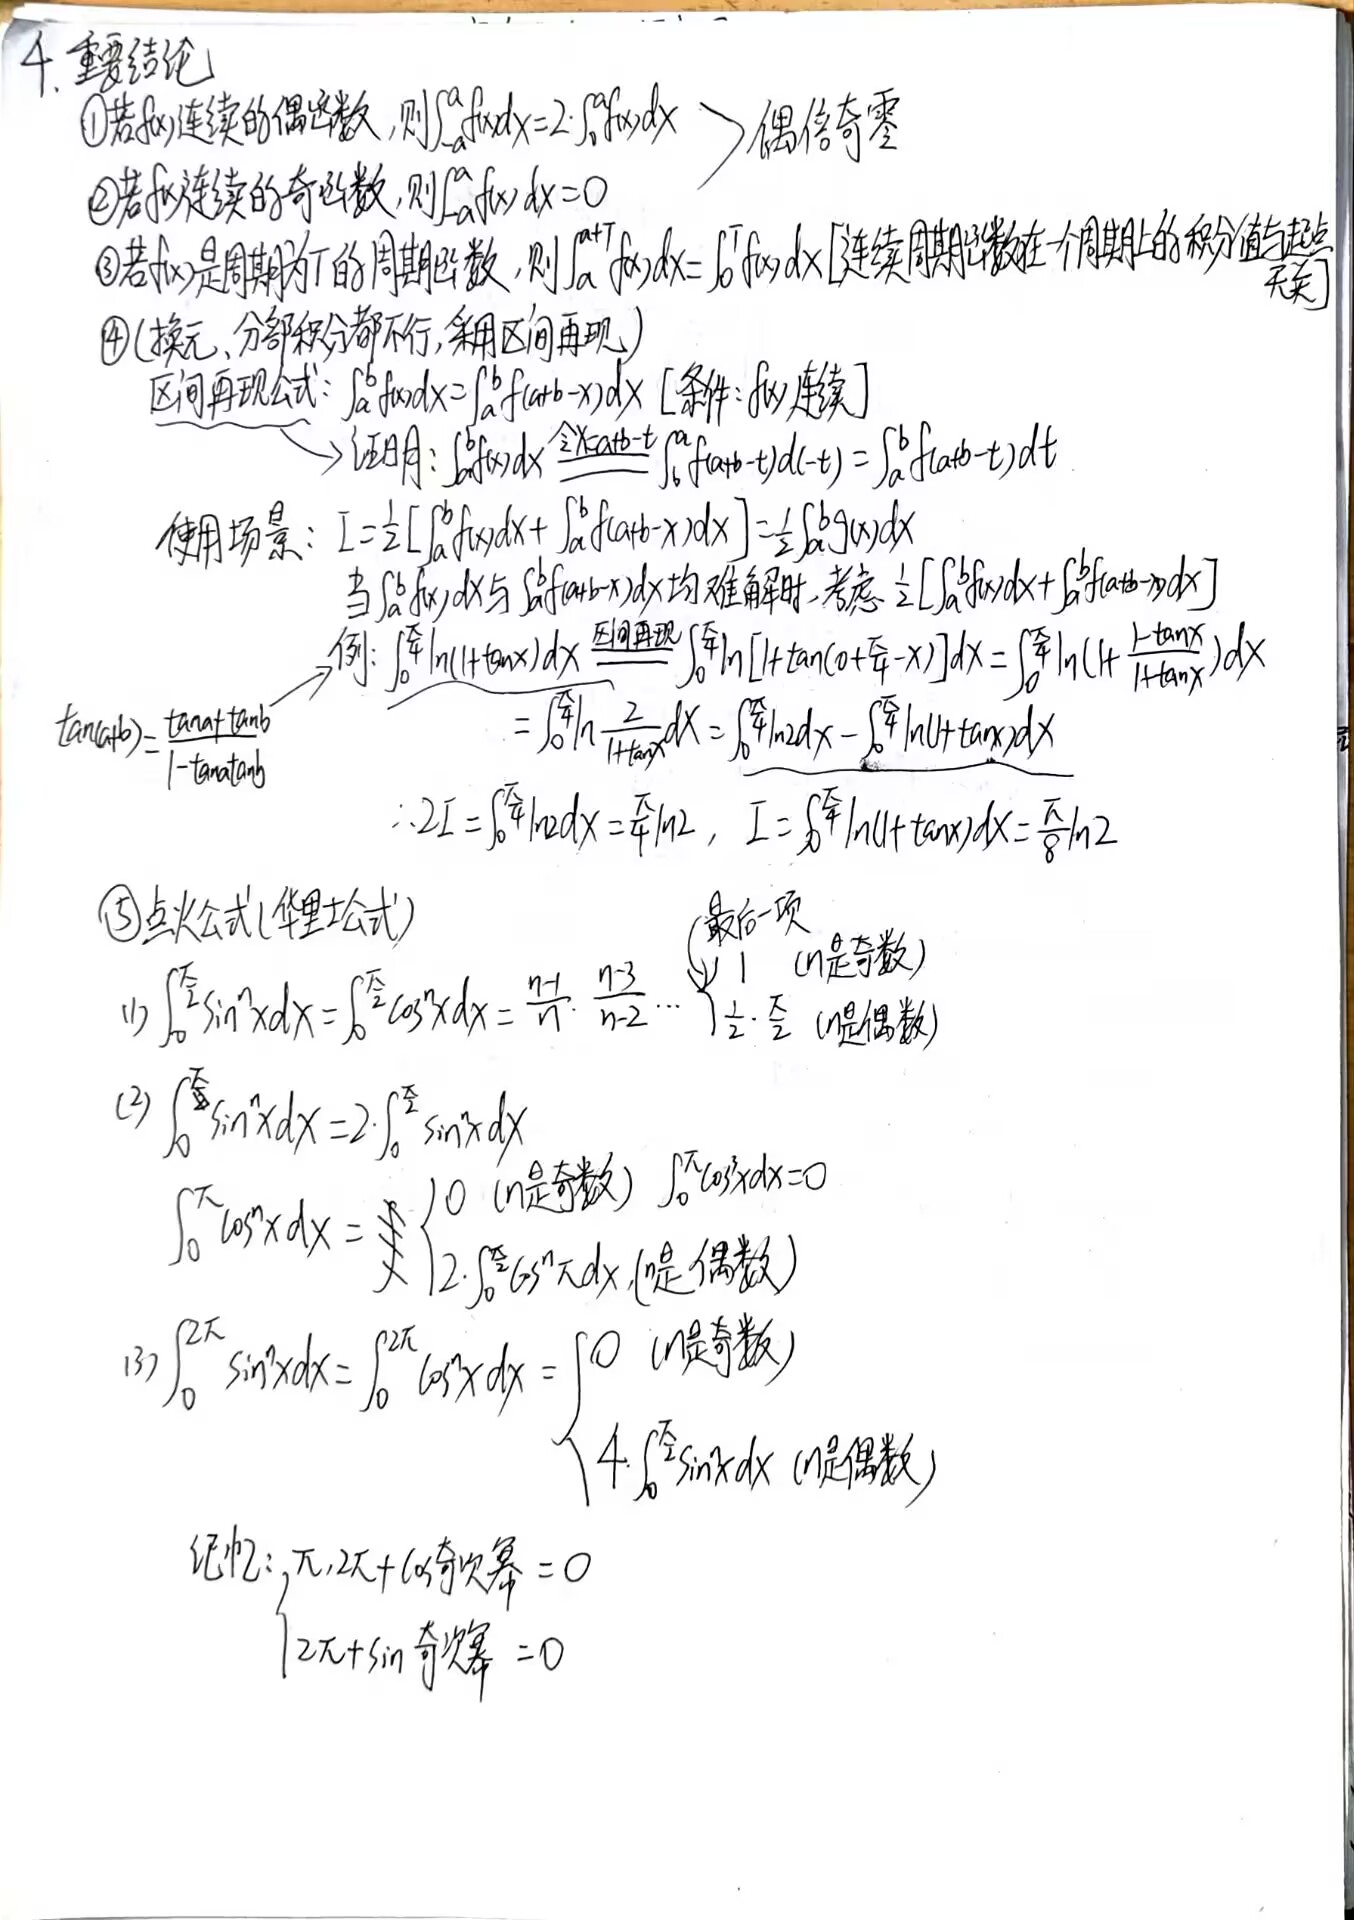 4. 重要结论
①若f(x)连续的偶函数,则∫_{-a}^{a}f(x)dx=2·∫_0^a f(x)dx > 偶倍奇零
②若f(x)连续的奇函数,则∫_{-a}^{a}f(x)dx=0
③若f(x)是周期为T的周期函数,则∫_a^{a+T}f(x)dx=∫_0^T f(x)dx[连续周期函数在一个周期上的积分值与起点
无关]
④(换元、分部积分都不行,采用区间再现)
区间再现公式:∫_a^b f(x)dx=∫_a^b f(a+b-x)dx [条件:f(x)连续]
→证明:∫_a^b f(x)dx 令x=a+b-t ∫_b^a f(a+b-t)d(-t)=∫_a^b f(a+b-t)dt
使用场景:I=1/2[∫_a^b f(x)dx+∫_a^b f(a+b-x)dx]=1/2∫_a^b g(x)dx
当∫_a^b f(x)dx与∫_a^b f(a+b-x)dx均难解时,考虑1/2[∫_a^b f(x)dx+∫_a^b f(a+b-x)dx]
例:∫_0^{π/4}ln(1+tanx)dx 区间再现 ∫_0^{π/4}ln[1+tan(0+π/4-x)]dx=∫_0^{π/4}ln(1+(1-tanx)/(1+tanx))dx
tan(a+b)=(tana+tanb)/(1-tanatanb)
=∫_0^{π/4}ln 2/(1+tanx)dx=∫_0^{π/4}ln2dx-∫_0^{π/4}ln(1+tanx)dx
∴2I=∫_0^{π/4}ln2dx=π/4 ln2, I=∫_0^{π/4}ln(1+tanx)dx=π/8 ln2
⑤点火公式(华里士公式)
最后一项
(1)∫_0^{π/2}sin^n xdx=∫_0^{π/2}cos^n xdx=(n-1)/n·(n-3)/(n-2)…{1 (n是奇数)
1/2·π/2 (n是偶数)
(2)∫_0^π sin^n xdx=2·∫_0^{π/2}sin^n xdx
∫_0^π cos^n xdx={0 (n是奇数) ∫_0^π cos^3 xdx=0
2·∫_0^{π/2}cos^n πdx,(n是偶数)
(3)∫_0^{2π}sin^n xdx=∫_0^{2π}cos^n xdx={0 (n是奇数)
4·∫_0^{π/2}sin^n xdx (n是偶数)
记忆:{π,2π+cos奇次幂=0
2π+sin奇次幂=0